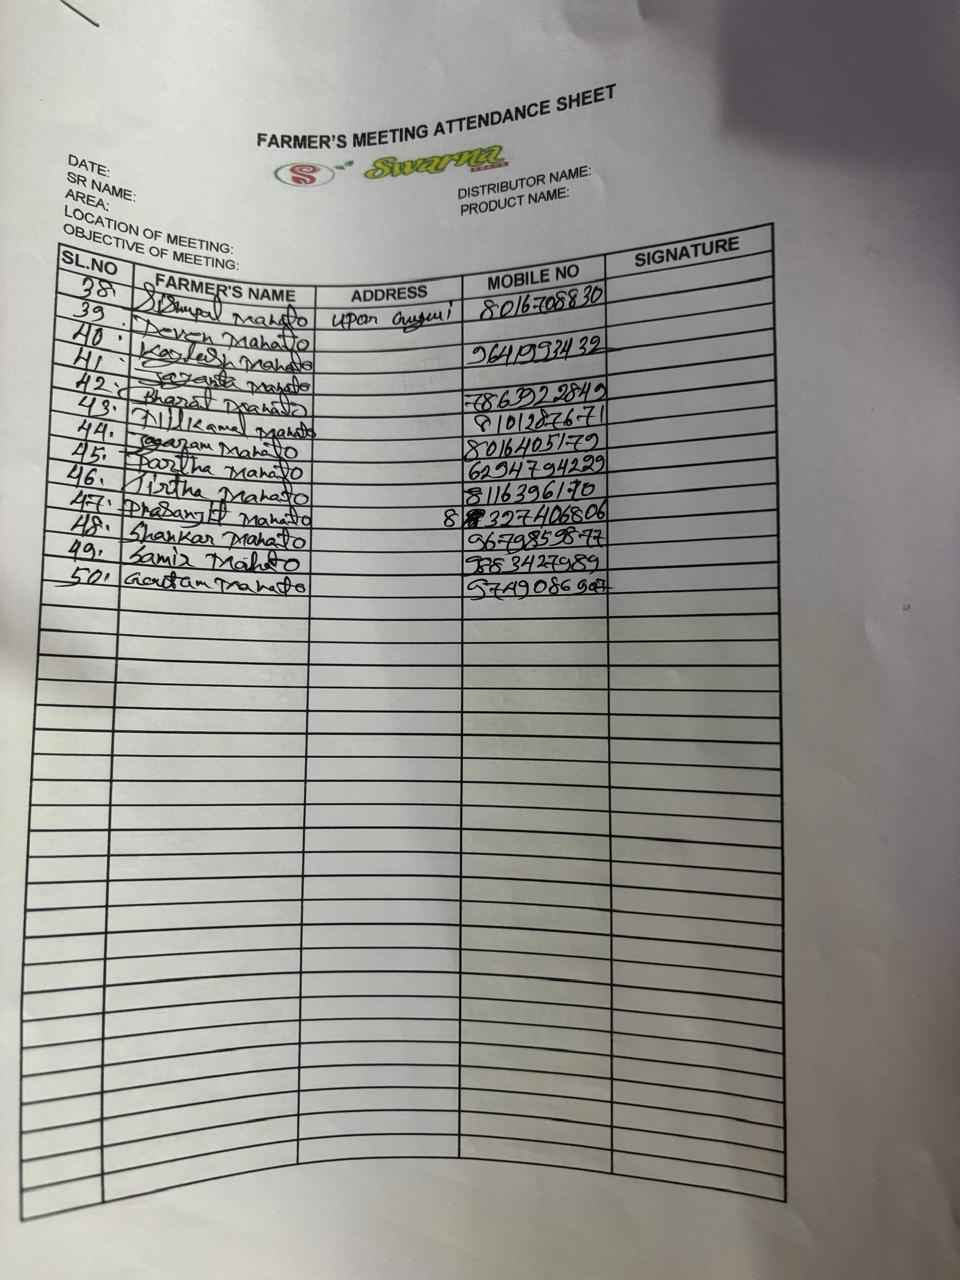 FARMER'S MEETING ATTENDANCE SHEET
S Swarna
DATE:
SR NAME:
AREA:
LOCATION OF MEETING:
OBJECTIVE OF MEETING:
DISTRIBUTOR NAME:
PRODUCT NAME:
SL.NO FARMER'S NAME ADDRESS MOBILE NO SIGNATURE
38. Mahato upan 8016708830
39. Deven Mahato
40. Kartesh Mahato 9641993432
41. Jayanta Mahato
42. Bharat Mahato 7863922849
43. Nilkamal Mahato 8101287671
44. Jagaram Mahato 8016405179
45. Partha Mahato 6294794229
46. Tirtha Mahato 8116396170
47. Prasanjit Mahato 8 327406806
48. Shankar Mahato 9679859877
49. Samir Mahato 9883427989
50. Goutam Mahato